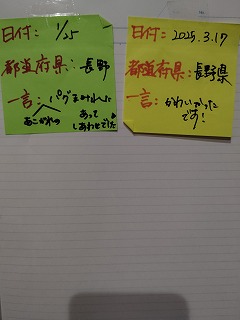 日付：1/25
都道府県：長野
一言：パグまみれに
あこがれの
あって
しあわせでした
日付：2025.3.17
都道府県：長野県
一言：かわいかった
です！